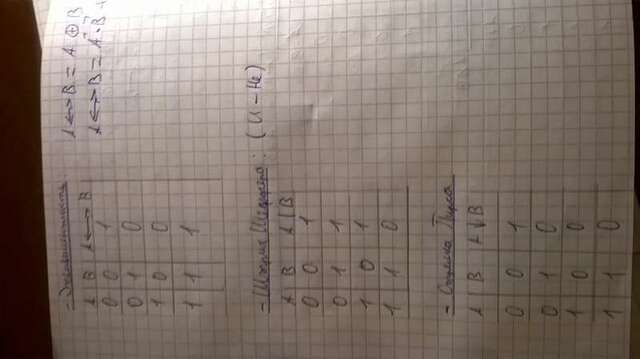 - Эквивалентность
A B A ↔ B
0 0 1
0 1 0
1 0 0
1 1 1
A ↔ B = A ⊕ B
A ↔ B = A · B +
- Штрих Шеффера : (И - Не)
A B A | B
0 0 1
0 1 1
1 0 1
1 1 0
- Стрелка Пирса
A B A ↓ B
0 0 1
0 1 0
1 0 0
1 1 0